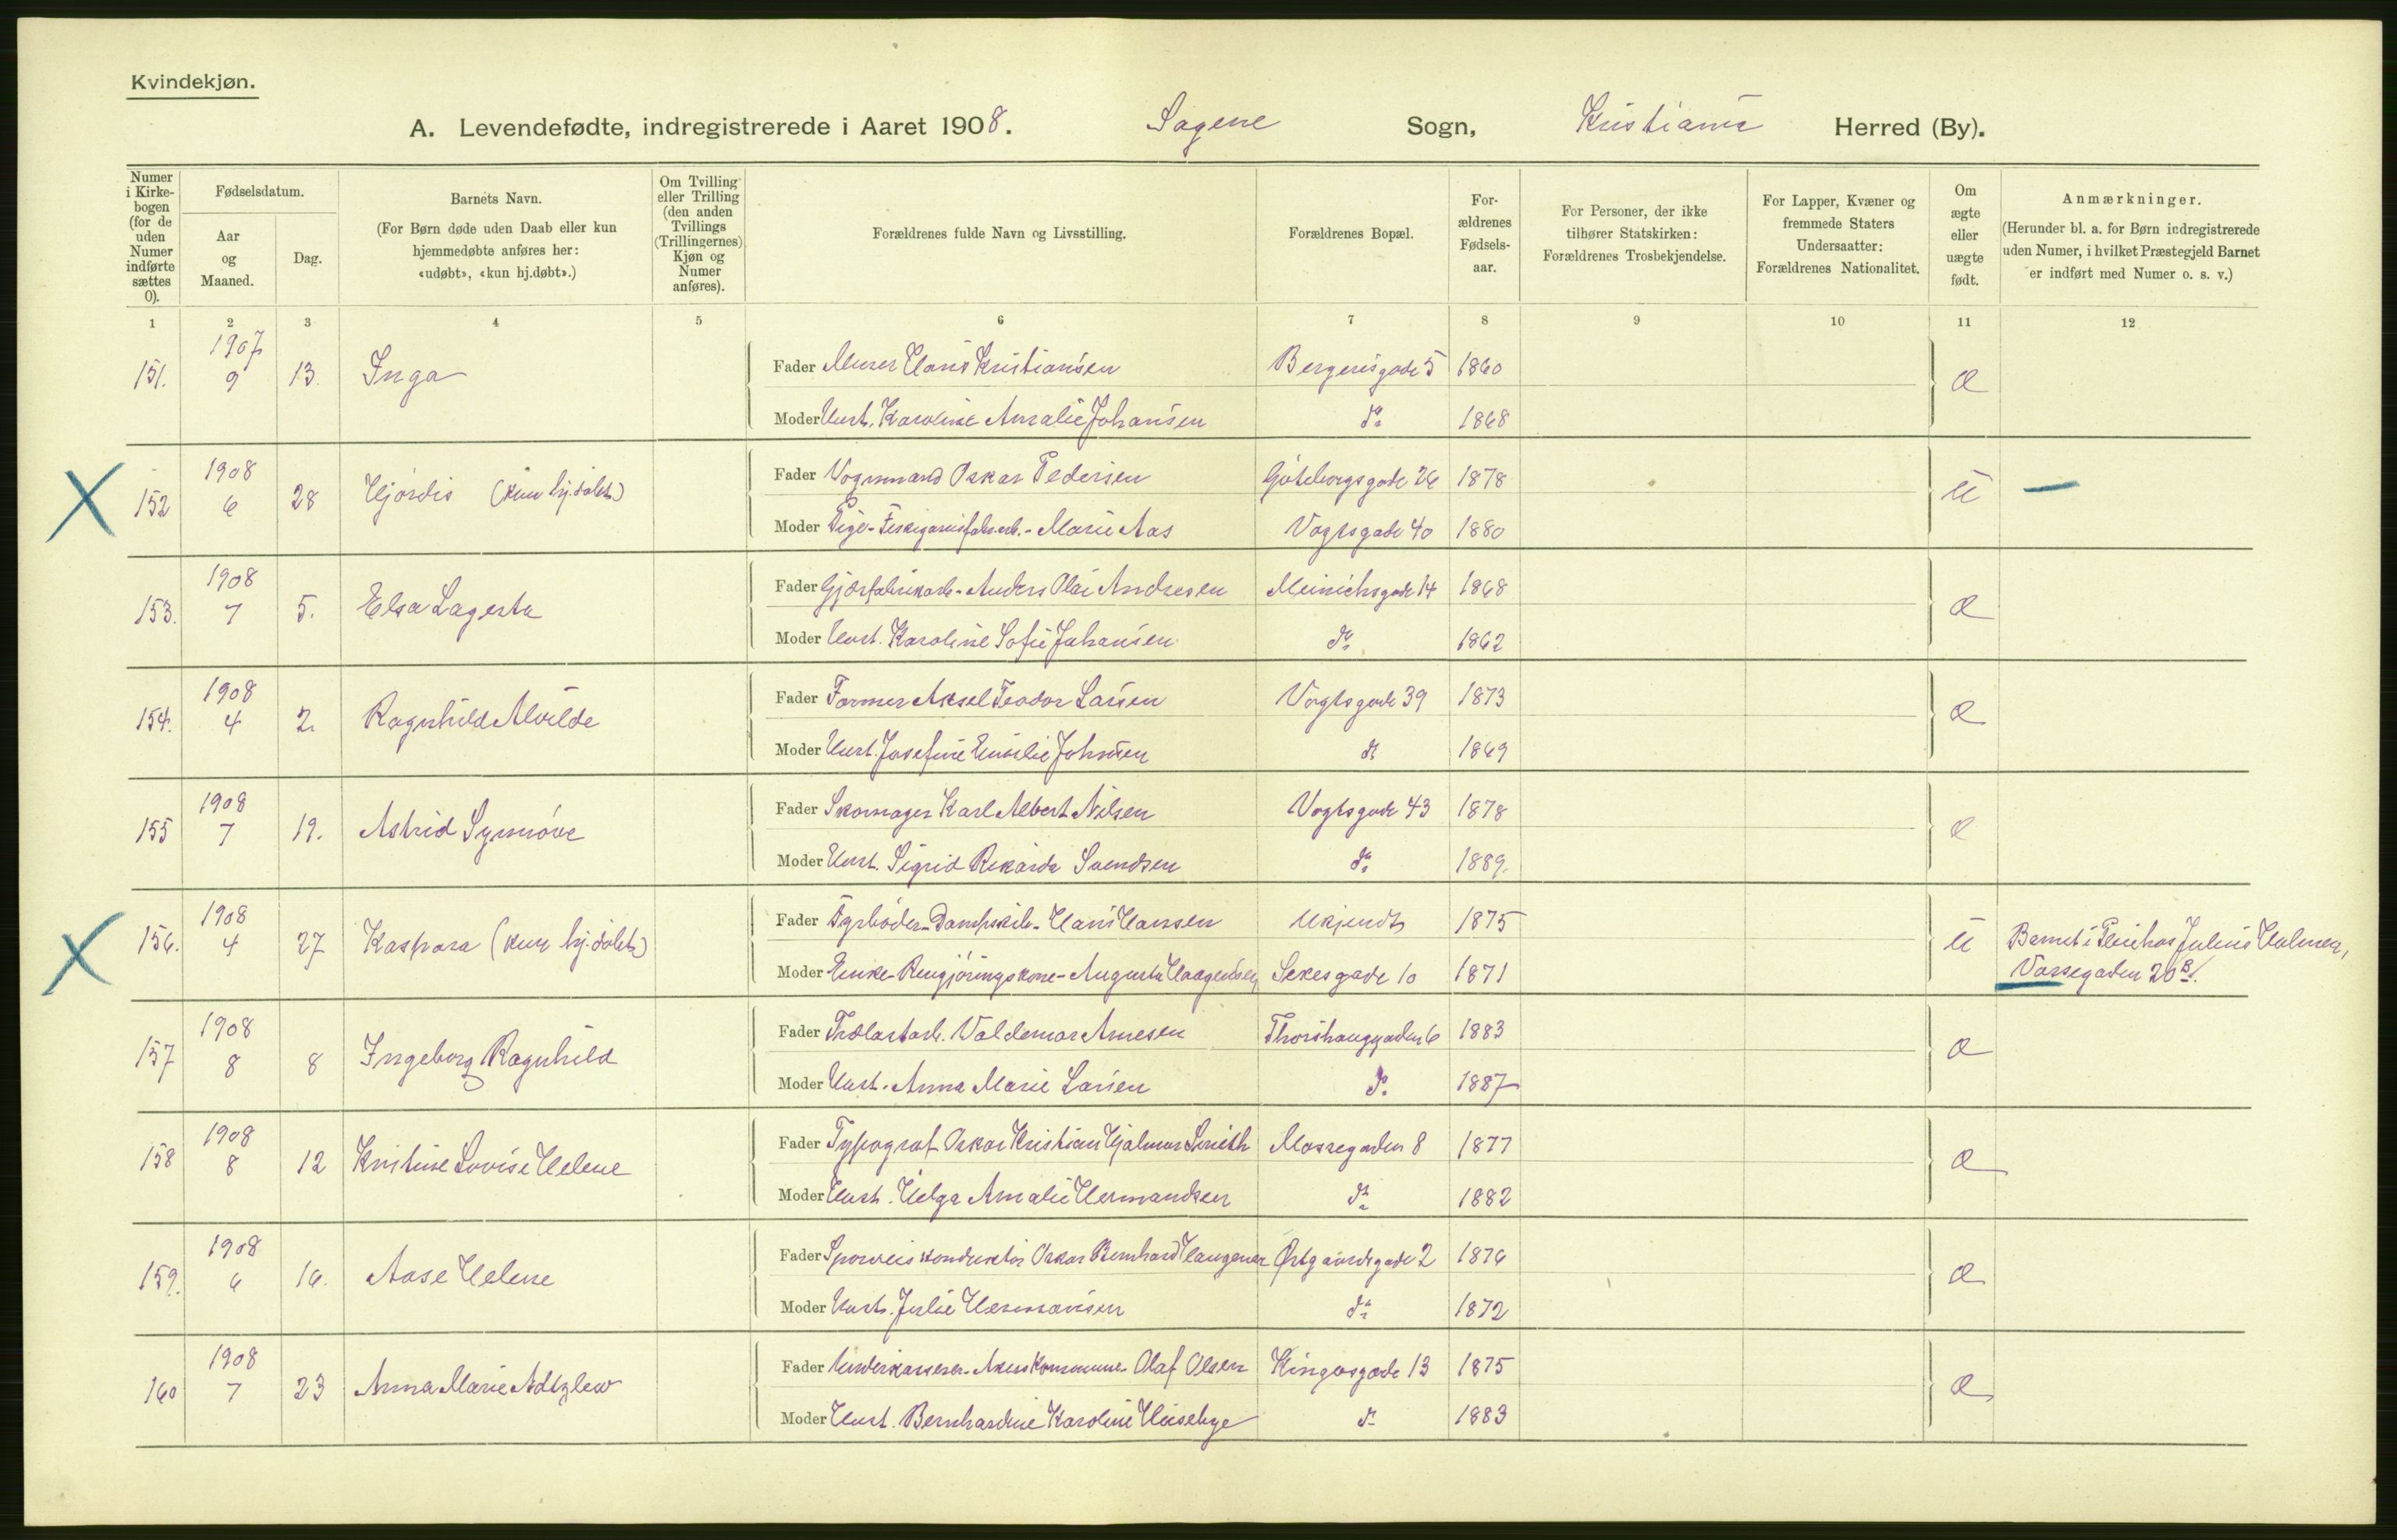 Kvindekjøn.
A. Levendefødte, indregistrerede i Aaret 1908. Sagene Sogn, Kristiania Herred (By).
Numer i Kirkebogen (for de uden Numer indførte sættes 0).
Fødselsdatum.
Aar og Maaned.
Dag.
Barnets Navn.
(For Børn døde uden Daab eller kun hjemmedøbte anføres her: «udøbt», «kun hj.døbt».)
Om Tvilling eller Trilling (den anden Tvillings (Trillingernes) Kjøn og Numer anføres).
Forældrenes fulde Navn og Livsstilling.
Forældrenes Bopæl.
Forældrenes Fødselsaar.
For Personer, der ikke tilhører Statskirken: Forældrenes Trosbekjendelse.
For Lapper, Kvæner og fremmede Staters Undersaatter: Forældrenes Nationalitet.
Om ægte eller uægte født.
Anmærkninger.
(Herunder bl. a. for Børn indregistrerede uden Numer, i hvilket Præstegjeld Barnet er indført med Numer o. s. v.)
1 2 3 4 5 6 7 8 9 10 11 12
151. 1907 9 13. Inga Fader Murer Hans Kristiansen Bergensgade 5 1860 æ
Moder Hust. Karoline Amalie Johansen do 1868
152 1908 6 28 Hjørdis (kun hj.døbt) Fader Vognmand Oskar Pedersen Gøteborgsgade 26 1878 u —
Moder Pige- - Marie Aas Vogtsgade 40 1880
153. 1908 7 5. Elsa Lagerta Fader Gjærfabrikarb. - Anders Olai Andresen Meinichsgade 14 1868 æ
Moder Hust. Karoline Sofie Johansen do 1862
154. 1908 4 2. Ragnhild Alvilde Fader Former Aksel Teodor Larsen Vogtsgade 39 1873 æ
Moder Hust. Josefine Emilie Johnsen do 1869
155 1908 7 19. Astrid Synnøve Fader Skomager Karl Albert Nilsen Vogtsgade 43 1878 æ
Moder Hust. Sigrid Rikarda Svendsen do 1889.
156. 1908 4 27 Kaspara (kun hj.døbt) Fader Fyrbøder-Dampskib- Hans Hansen Ukjendt 1875 u Barnet i Pleie hos Julius Holmen,
Moder Enke-Rengjøringskone-Augusta Haagensen Seksesgade 10 1871 Vossegaden 20 B.
157 1908 8 8 Ingeborg Ragnhild Fader Trælastarb. Valdemar Arnesen Thorshauggaden 6 1883 æ
Moder Hust. Anna Marie Larsen do 1887
158 1908 8 12 Kristine Lovise Helene Fader Typograf Oskar Kristian Hjalmar Smith Mossegaden 8 1877 æ
Moder Hust. Helga Amalie Hermandsen do 1882
159. 1908 6 16. Aase Helene Fader Sporveiskonduktør Oskar Bernhard Haugener Østgaardsgade 2 1876 æ
Moder Hust. Julie Hermansen do 1872
160 1908 7 23 Anna Marie Fader Underkasserer-Akers Kommune Olaf Olsen Kingosgade 13 1875 æ
Moder Hust. Bernhardine Karoline Huseby do 1883